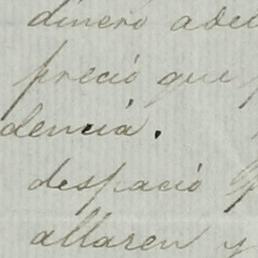 dinero ade
preció que
dencia.
despació
allaren y